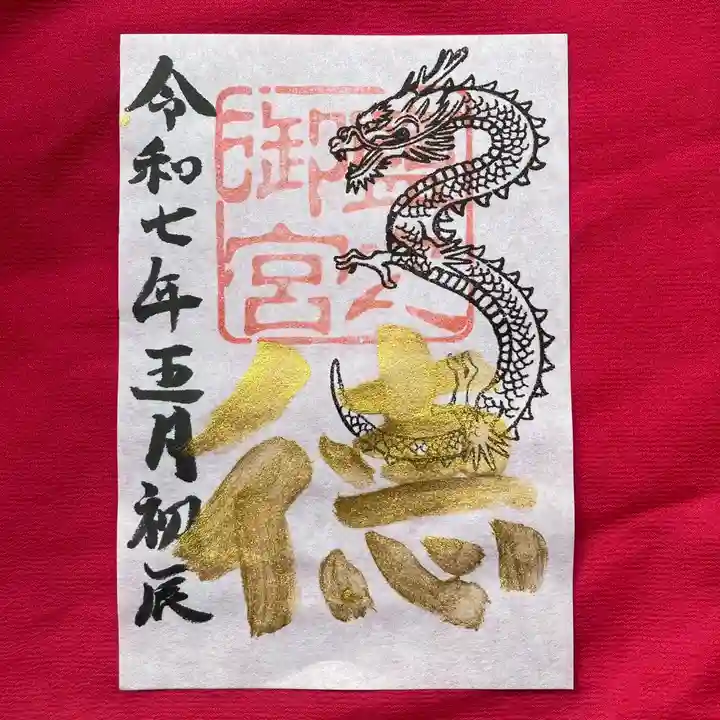 御宮
徳
令和七年五月初辰